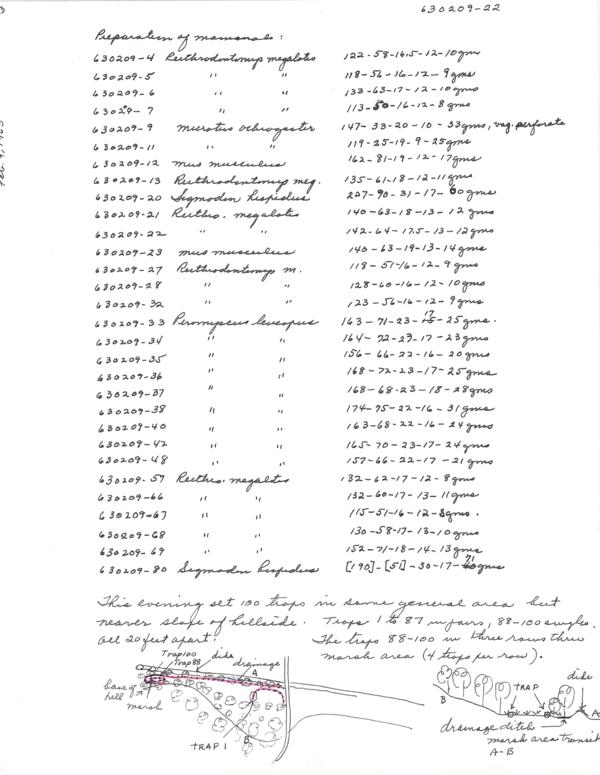 630209-22
Feb. 9, 1963
Preparation of mammals:
630209-4 Reithrodontomys megalotis 122-58-16.5-12-10gm
630209-5 " " 118-56-16-12-9gms
630209-6 " " 133-63-17-12-10gms
630209-7 " " 113-50-16-12-8gms
630209-9 Microtus ochrogaster 147-33-20-10-33gms, vag. perforate
630209-11 " " 119-25-19-9-25gms
630209-12 Mus musculus 162-81-19-12-17gms
630209-13 Reithrodontomys meg. 135-61-18-12-11gms
630209-20 Sigmodon hispidus 227-90-31-17-60gms
630209-21 Reithro. megalotis 140-63-18-13-12gms
630209-22 " " 142-64-17.5-13-12gms
630209-23 Mus musculus 140-63-19-13-14gms
630209-27 Reithrodontomys m. 118-51-16-12-9gms
630209-28 " " 128-60-16-12-10gms
630209-32 " " 123-56-16-12-9gms
630209-33 Peromyscus leucopus 163-71-23-17-25gms.
630209-34 " " 164-72-23-17-23gms
630209-35 " " 156-66-22-16-20gms
630209-36 " " 168-72-23-17-25gms
630209-37 " " 168-68-23-18-28gms
630209-38 " " 174-75-22-16-31gms
630209-40 " " 163-68-22-16-24gms
630209-42 " " 165-70-23-17-24gms
630209-48 " " 157-66-22-17-21gms
630209-57 Reithro. megalotis 132-62-17-12-8gms
630209-66 " " 132-60-17-13-11gms
630209-67 " " 115-51-16-12-8gms.
630209-68 " " 130-58-17-13-10gms
630209-69 " " 152-71-18-14-13gms
630209-80 Sigmodon hispidus [190]-[51]-30-17-71gms
This evening set 100 traps in same general area but
nearer slope of hillside. Traps 1 to 87 in pairs, 88-100 singles.
All 20 feet apart. The traps 88-100 in three rows thru
marsh area (4 traps per row).
Trap100 dike
Trap88 drainage A
base of hill
marsh
TRAP 1 B
dike
TRAP
B A
drainage ditch
marsh area transit
A-B